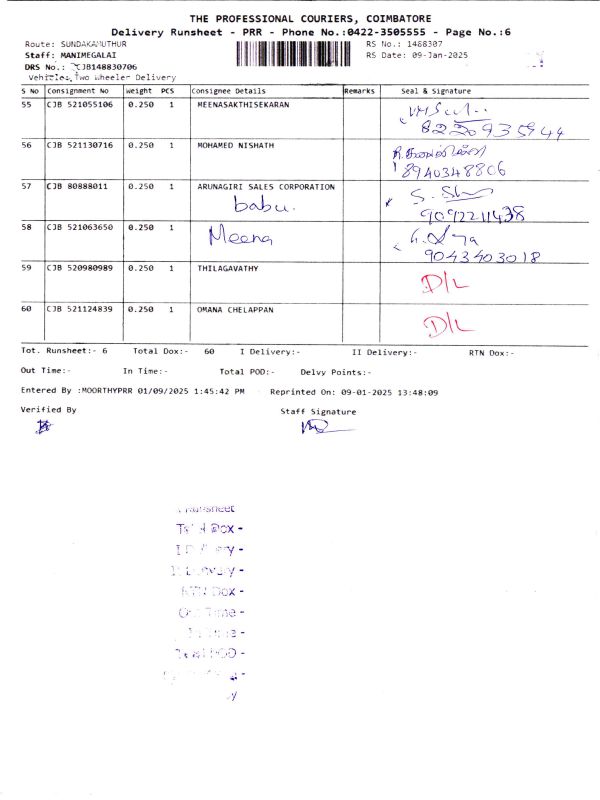 THE PROFESSIONAL COURIERS, COIMBATORE
Delivery Runsheet - PRR - Phone No.:0422-3505555 - Page No.:6
Route: SUNDAKAMUTHUR RS No.: 1488307
Staff: MANIMEGALAI RS Date: 09-Jan-2025
DRS No.: CJB148830706
Vehicles,Two Wheeler Delivery
S No Consignment No Weight PCS Consignee Details Remarks Seal & Signature
55 CJB 521055106 0.250 1 MEENASAKTHISEKARAN
8220935944
56 CJB 521130716 0.250 1 MOHAMED NISHATH
8940348806
57 CJB 80888011 0.250 1 ARUNAGIRI SALES CORPORATION
babu.
9092211438
58 CJB 521063650 0.250 1 Meena
9043403018
59 CJB 520980989 0.250 1 THILAGAVATHY D/L
60 CJB 521124839 0.250 1 OMANA CHELAPPAN D/L
Tot. Runsheet:- 6 Total Dox:- 60 I Delivery:- II Delivery:- RTN Dox:-
Out Time:- In Time:- Total POD:- Delvy Points:-
Entered By :MOORTHYPRR 01/09/2025 1:45:42 PM Reprinted On: 09-01-2025 13:48:09
Verified By Staff Signature
Runsheet
Total Dox -
I Delivery -
II Delivery -
RTN Dox -
Out Time -
In Time -
Total POD -